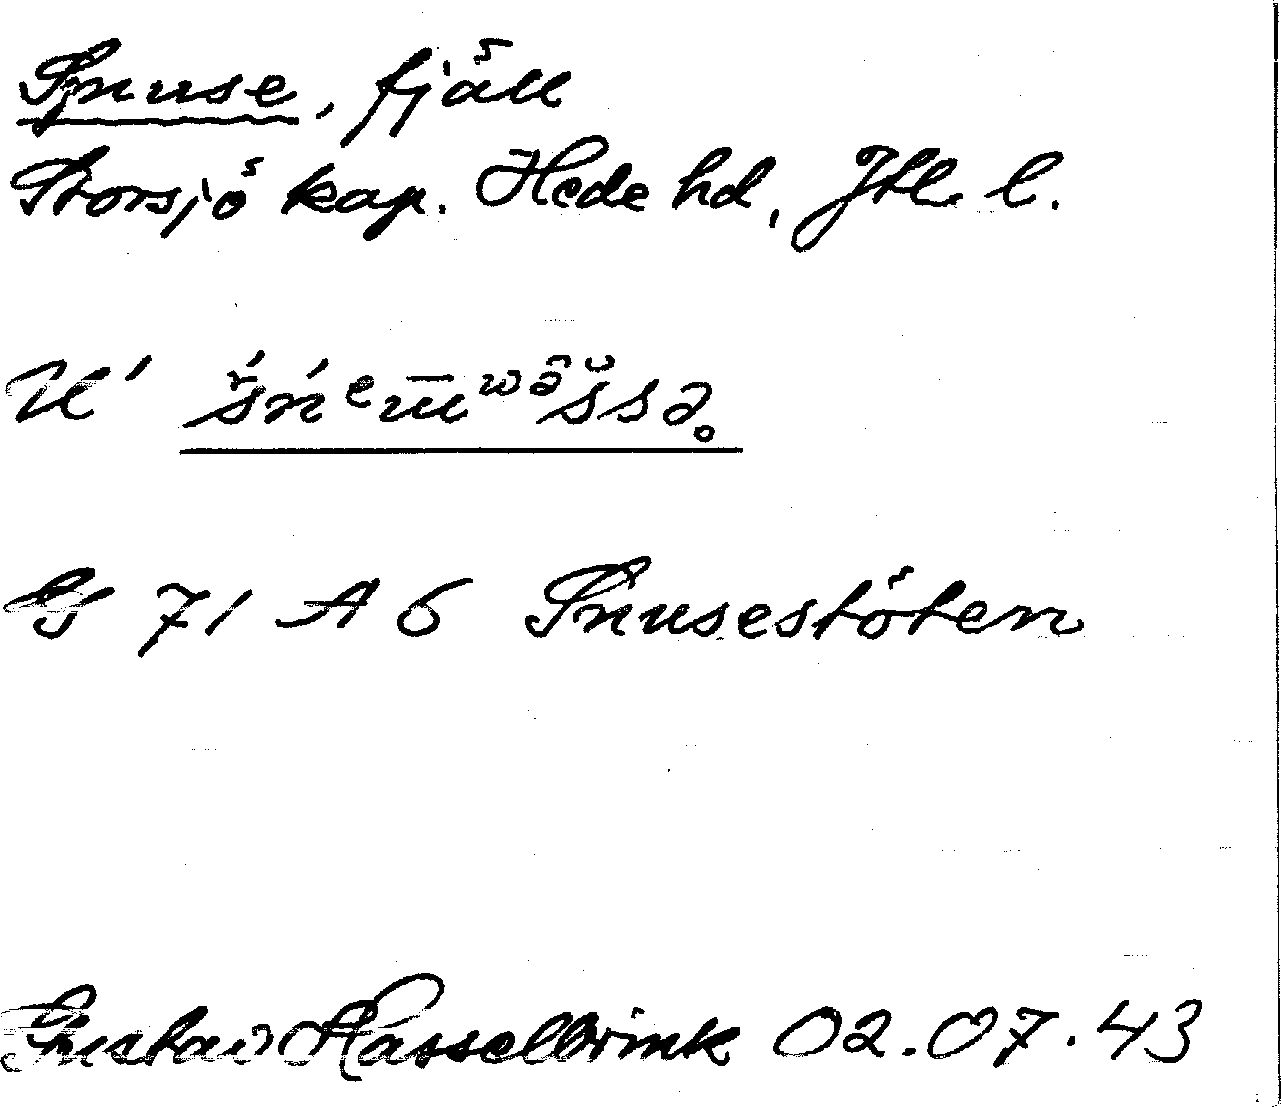 Snuse, fjäll
Storsjö kap. Hede hd, Jtl. l.
U'
G 71 A 6 Snusestöten
Gustav Hasselbrink 02.07.43